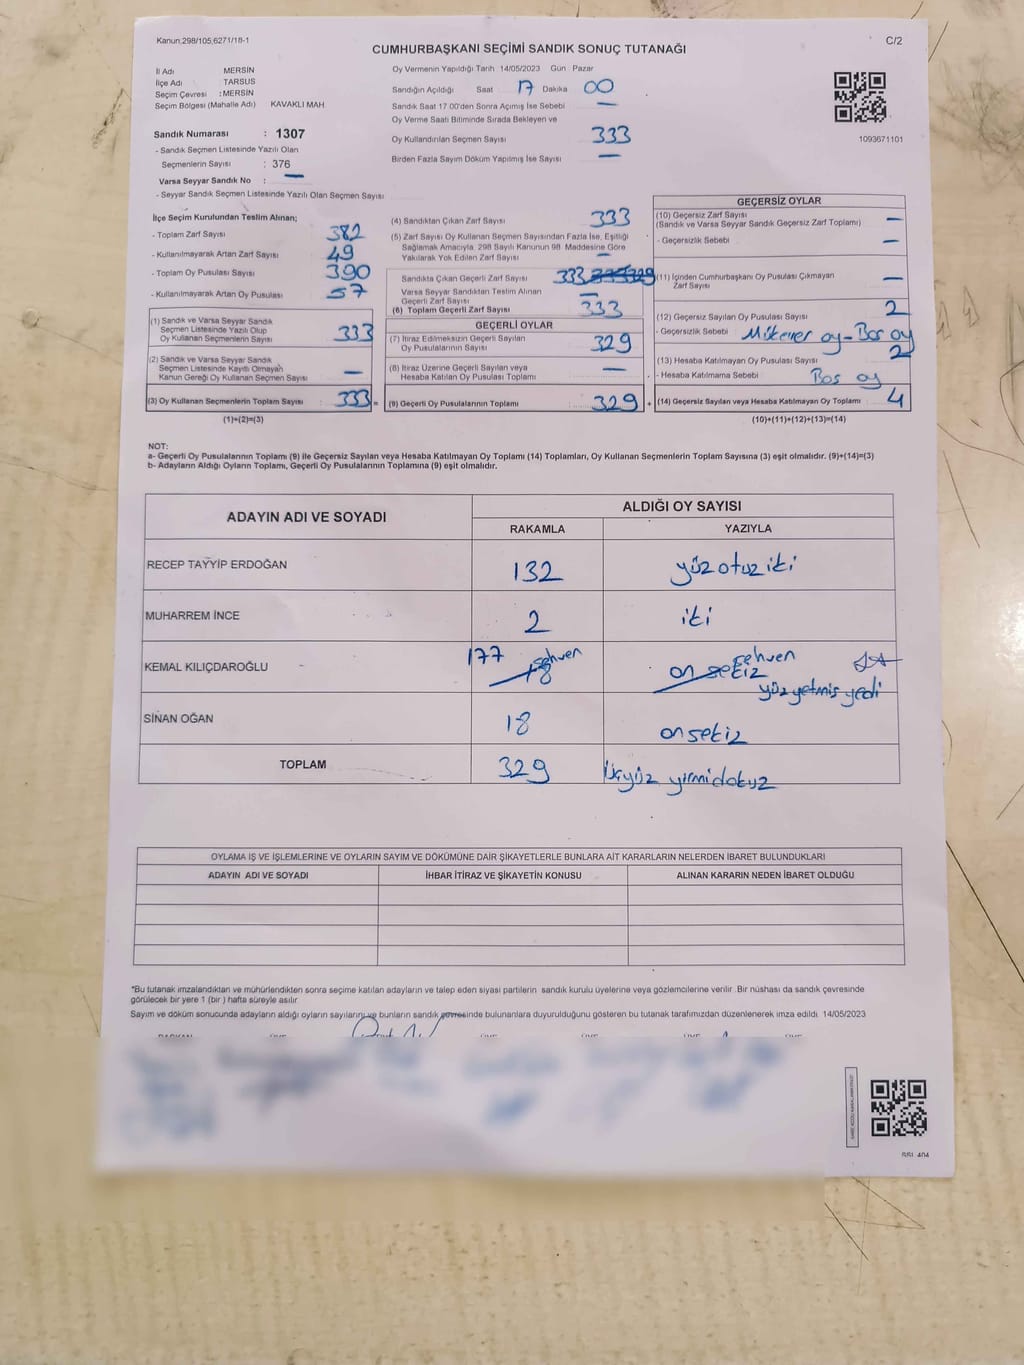 Kanun,298/105,6271/18-1
C/2
CUMHURBAŞKANI SEÇİMİ SANDIK SONUÇ TUTANAĞI
İl Adı MERSİN
İlçe Adı TARSUS
Seçim Çevresi : MERSİN
Seçim Bölgesi (Mahalle Adı) KAVAKLI MAH
Sandık Numarası : 1307
- Sandık Seçmen Listesinde Yazılı Olan
Seçmenlerin Sayısı : 376
Varsa Seyyar Sandık No : —
- Seyyar Sandık Seçmen Listesinde Yazılı Olan Seçmen Sayısı
Oy Vermenin Yapıldığı Tarih 14/05/2023 Gün : Pazar
Sandığın Açıldığı Saat 17 Dakika 00
Sandık Saat 17 00'den Sonra Açımış İse Sebebi —
Oy Verme Saati Bitiminde Sırada Bekleyen ve
Oy Kullandırılan Seçmen Sayısı 333
Birden Fazla Sayım Döküm Yapılmış İse Sayısı —
1093671101
İlçe Seçim Kurulundan Teslim Alınan;
- Toplam Zarf Sayısı 382
- Kullanılmayarak Artan Zarf Sayısı 49
- Toplam Oy Pusulası Sayısı 390
- Kullanılmayarak Artan Oy Pusulası 57
(1) Sandık ve Varsa Seyyar Sandık
Seçmen Listesinde Yazılı Olup
Oy Kullanan Seçmenlerin Sayısı 333
(2) Sandık ve Varsa Seyyar Sandık
Seçmen Listesinde Kayıtlı Olmayan
Kanun Gereği Oy Kullanan Seçmen Sayısı —
(3) Oy Kullanan Seçmenlerin Toplam Sayısı 333 =
(1)+(2)=(3)
(4) Sandıktan Çıkan Zarf Sayısı 333
(5) Zarf Sayısı Oy Kullanan Seçmen Sayısından Fazla İse, Eşitliği
Sağlamak Amacıyla 298 Sayılı Kanunun 98 Maddesine Göre
Yakılarak Yok Edilen Zarf Sayısı —
Sandıkta Çıkan Geçerli Zarf Sayısı 333 329
Varsa Seyyar Sandıktan Teslim Alınan
Geçerli Zarf Sayısı —
(6) Toplam Geçerli Zarf Sayısı 333
GEÇERLİ OYLAR
(7) İtiraz Edilmeksizin Geçerli Sayılan
Oy Pusulalarının Sayısı 329
(8) İtiraz Üzerine Geçerli Sayılan veya
Hesaba Katılan Oy Pusulası Toplamı —
(9) Geçerli Oy Pusulalarının Toplamı 329 +
GEÇERSİZ OYLAR
(10) Geçersiz Zarf Sayısı
(Sandık ve Varsa Seyyar Sandık Geçersiz Zarf Toplamı) —
- Geçersizlik Sebebi —
(11) İçinden Cumhurbaşkanı Oy Pusulası Çıkmayan
Zarf Sayısı —
(12) Geçersiz Sayılan Oy Pusulası Sayısı 2
- Geçersizlik Sebebi Mükerrer oy-Bos oy
(13) Hesaba Katılmayan Oy Pusulası Sayısı 2
- Hesaba Katılmama Sebebi Bos oy
(14) Geçersiz Sayılan veya Hesaba Katılmayan Oy Toplamı 4
(10)+(11)+(12)+(13)=(14)
NOT:
a- Geçerli Oy Pusulalarının Toplamı (9) ile Geçersiz Sayılan veya Hesaba Katılmayan Oy Toplamı (14) Toplamları, Oy Kullanan Seçmenlerin Toplam Sayısına (3) eşit olmalıdır. (9)+(14)=(3)
b- Adayların Aldığı Oyların Toplamı, Geçerli Oy Pusulalarının Toplamına (9) eşit olmalıdır.
ADAYIN ADI VE SOYADI
ALDIĞI OY SAYISI
RAKAMLA YAZIYLA
RECEP TAYYİP ERDOĞAN 132 yüz otuz iki
MUHARREM İNCE 2 iki
KEMAL KILIÇDAROĞLU 177 18 sehven on sekiz sehven
yüz yetmiş yedi
SİNAN OĞAN 18 on sekiz
TOPLAM 329 Üçyüz yirmidokuz
OYLAMA İŞ VE İŞLEMLERİNE VE OYLARIN SAYIM VE DÖKÜMÜNE DAİR ŞİKAYETLERLE BUNLARA AİT KARARLARIN NELERDEN İBARET BULUNDUKLARI
ADAYIN ADI VE SOYADI İHBAR İTİRAZ VE ŞİKAYETİN KONUSU ALINAN KARARIN NEDEN İBARET OLDUĞU
*Bu tutanak imzalandıktan ve mühürlendikten sonra seçime katılan adayların ve talep eden siyasi partilerin sandık kurulu üyelerine veya gözlemcilerine verilir .Bir nüshası da sandık çevresinde
görülecek bir yere 1 (bir ) hafta süreyle asılır
Sayım ve döküm sonucunda adayların aldığı oyların sayılarını ve bunların sandık çevresinde bulunanlara duyurulduğunu gösteren bu tutanak tarafımızdan düzenlenerek imza edildi. 14/05/2023